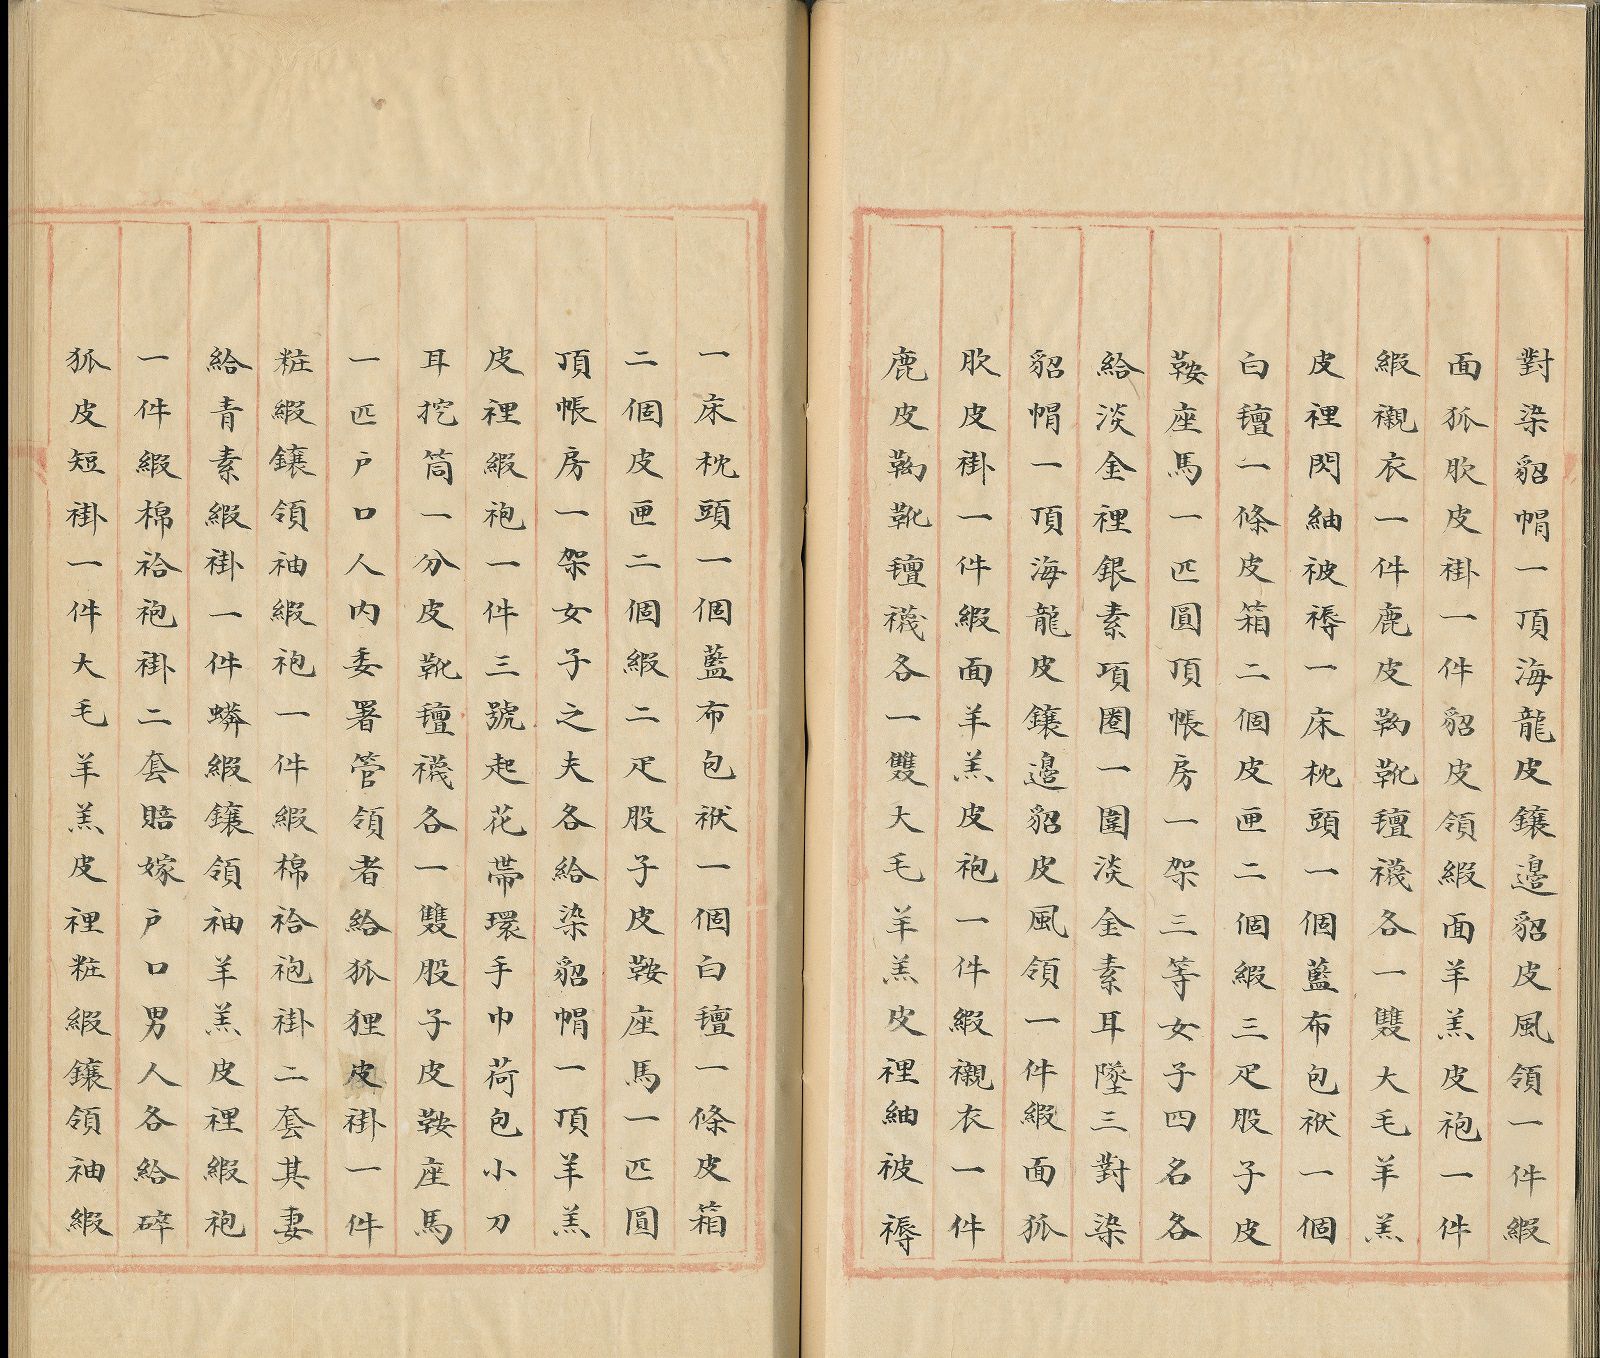 對染貂帽一頂海龍皮鑲邊貂皮風領一件緞
面狐肷皮褂一件貂皮領緞面羊羔皮袍一件
緞襯衣一件鹿皮靿靴氊襪各一雙大毛羊羔
皮裡閃紬被褥一床枕頭一個藍布包袱一個
白氊一條皮箱二個皮匣二個緞三疋股子皮
鞍座馬一匹圓頂帳房一架三等女子四名各
給淡金裡銀素項圈一圍淡金素耳墜三對染
貂帽一頂海龍皮鑲邊貂皮風領一件緞面狐
肷皮褂一件緞面羊羔皮袍一件緞襯衣一件
鹿皮靿靴氊襪各一雙大毛羊羔皮裡紬被褥
一床枕頭一個藍布包袱一個白氊一條皮箱
二個皮匣二個緞二疋股子皮鞍座馬一匹圓
頂帳房一架女子之夫各給染貂帽一頂羊羔
皮裡緞袍一件三號起花帶環手巾荷包小刀
耳挖筒一分皮靴氊襪各一雙股子皮鞍座馬
一匹戶口人內委署管領者給狐狸皮褂一件
粧緞鑲領袖緞袍一件緞棉袷袍褂二套其妻
給青素緞褂一件蟒緞鑲領袖羊羔皮裡緞袍
一件緞棉袷袍褂二套賠嫁戶口男人各給碎
狐皮短褂一件大毛羊羔皮裡粧緞鑲領袖緞